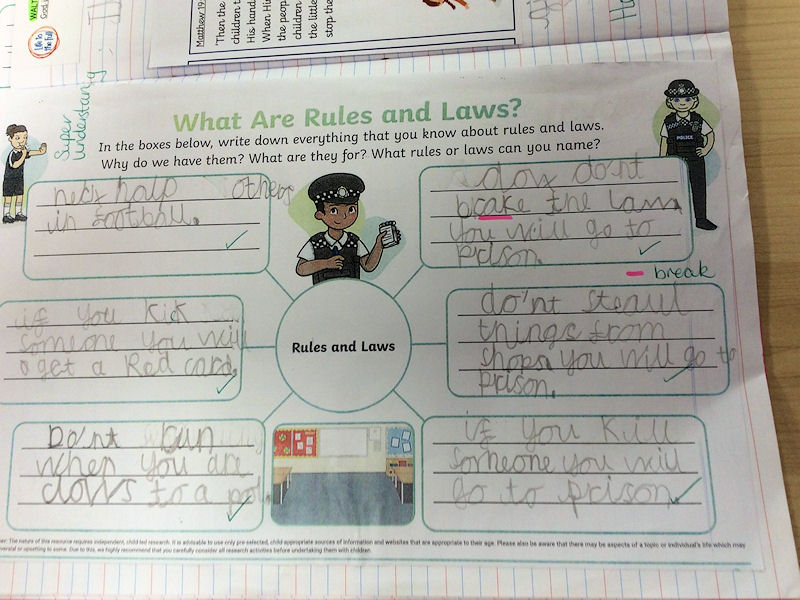 WALT
God
Life to
the Full
Matthew 19
'Then the
children t
His hand
When Hi
the peop
children
the little
stop the
Super
Understanding
What Are Rules and Laws?
In the boxes below, write down everything that you know about rules and laws.
Why do we have them? What are they for? What rules or laws can you name?
POLICE
help others
in football.
do'nt
bcake the law
you will go to
Prison.
break
if you kick
someone you will
get a Red card.
Rules and Laws
do'nt steaul
things from
shops you will go to
Prison.
Do'nt
when you are
clows to a
if you kill
someone you will
go to prison.
er: The nature of this resource requires independent, child led research. It is advisable to use only pre-selected, child appropriate sources of information and websites that are appropriate to their age. Please also be aware that there may be aspects of a topic or individual's life which may
versial or upsetting to some. Due to this, we highly recommend that you carefully consider all research activities before undertaking them with children.